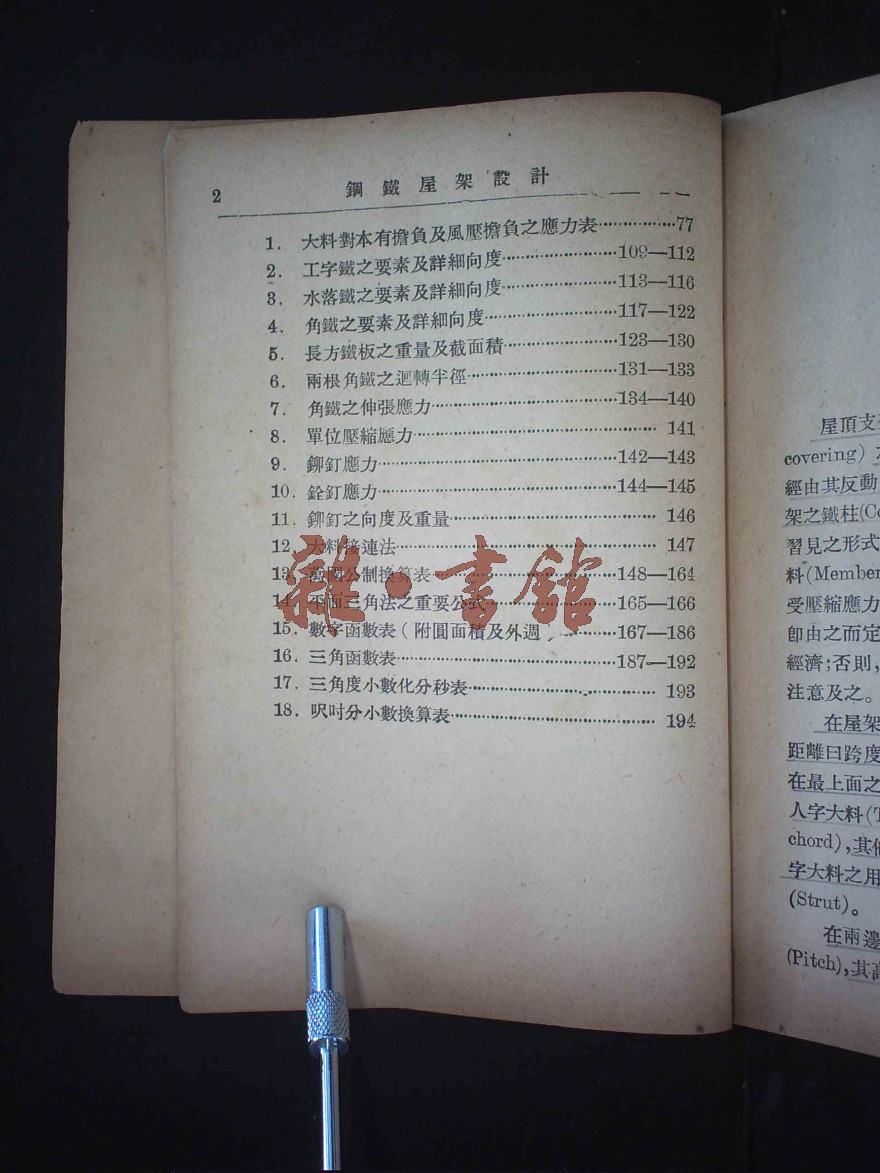 2
鋼鐵屋架設計
1. 大料對本有擔負及風壓擔負之應力表················77
2. 工字鐵之要素及詳細向度················109—112
3. 水落鐵之要素及詳細向度················113—116
4. 角鐵之要素及詳細向度················117—122
5. 長方鐵板之重量及截面積················123—130
6. 兩根角鐵之迴轉半徑················131—133
7. 角鐵之伸張應力················134—140
8. 單位壓縮應力················141
9. 鉚釘應力················142—143
10. 銓釘應力················144—145
11. 鉚釘之向度及重量················146
12. 大料接連法················147
13. 萬國公制換算表················148—164
14. 平面三角法之重要公式················165—166
15. 數字函數表(附圓面積及外週················167—186
16. 三角函數表················187—192
17. 三角度小數化分秒表················193
18. 呎吋分小數換算表················194
雜·書館
屋頂支
covering)
經由其反動
架之鐵柱(Co
習見之形式
料(Member
受壓縮應力
卽由之而定
經濟;否則,
注意及之。
在屋架
距離曰跨度
在最上面之
人字大料(T
chord),其他
字大料之用
(Strut)。
在兩邊
(Pitch),其高